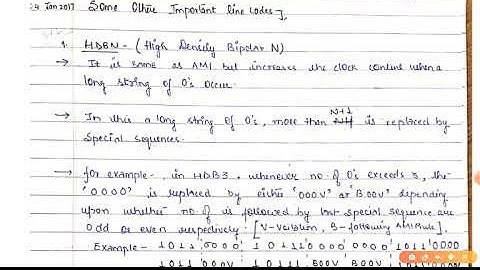 24 Jan 2017 Some Other Important line codes
1. HDBN - (High Density Bipolar N)
→ It is same as AMI but increases the clock content when a
long string of 0's occur.
→ In this a long string of 0's, more than N+1 is replaced by
special sequences.
→ for example, in HDB3 whenever no of 0's exceeds 3, the
'0000' is replaced by either '000V' or 'B00V' depending
upon whether no of 1s followed by last special sequence are
odd or even respectively. [V-Violation, B-following AMI Rule],
Example - 1011 0000 10111 0000 0000 1011 0000
1011 000V 10111 B00V B00V 1011